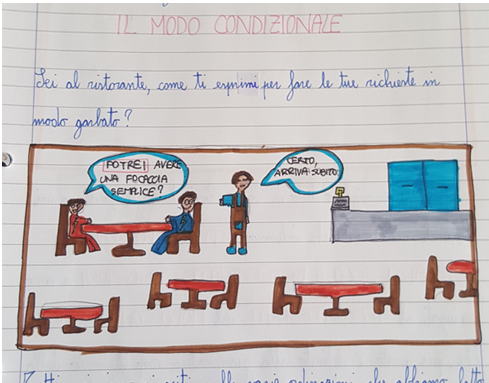 IL MODO CONDIZIONALE
Sei al ristorante, come ti esprimi per fare le tue richieste in
modo garbato?
POTREI AVERE
UNA FOCACCIA
SEMPLICE?
CERTO,
ARRIVA SUBITO
che abbiamo fatto